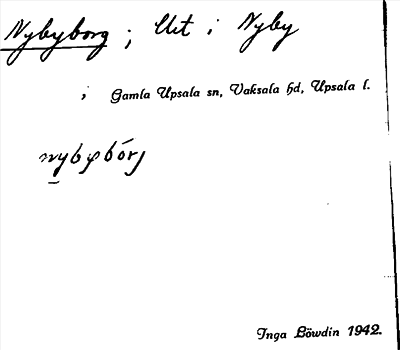 Nybyborg ; Urt i Nyby
; Gamla Upsala sn, Vaksala hd, Upsala l.
nybybórj
Inga Löwdin 1942.